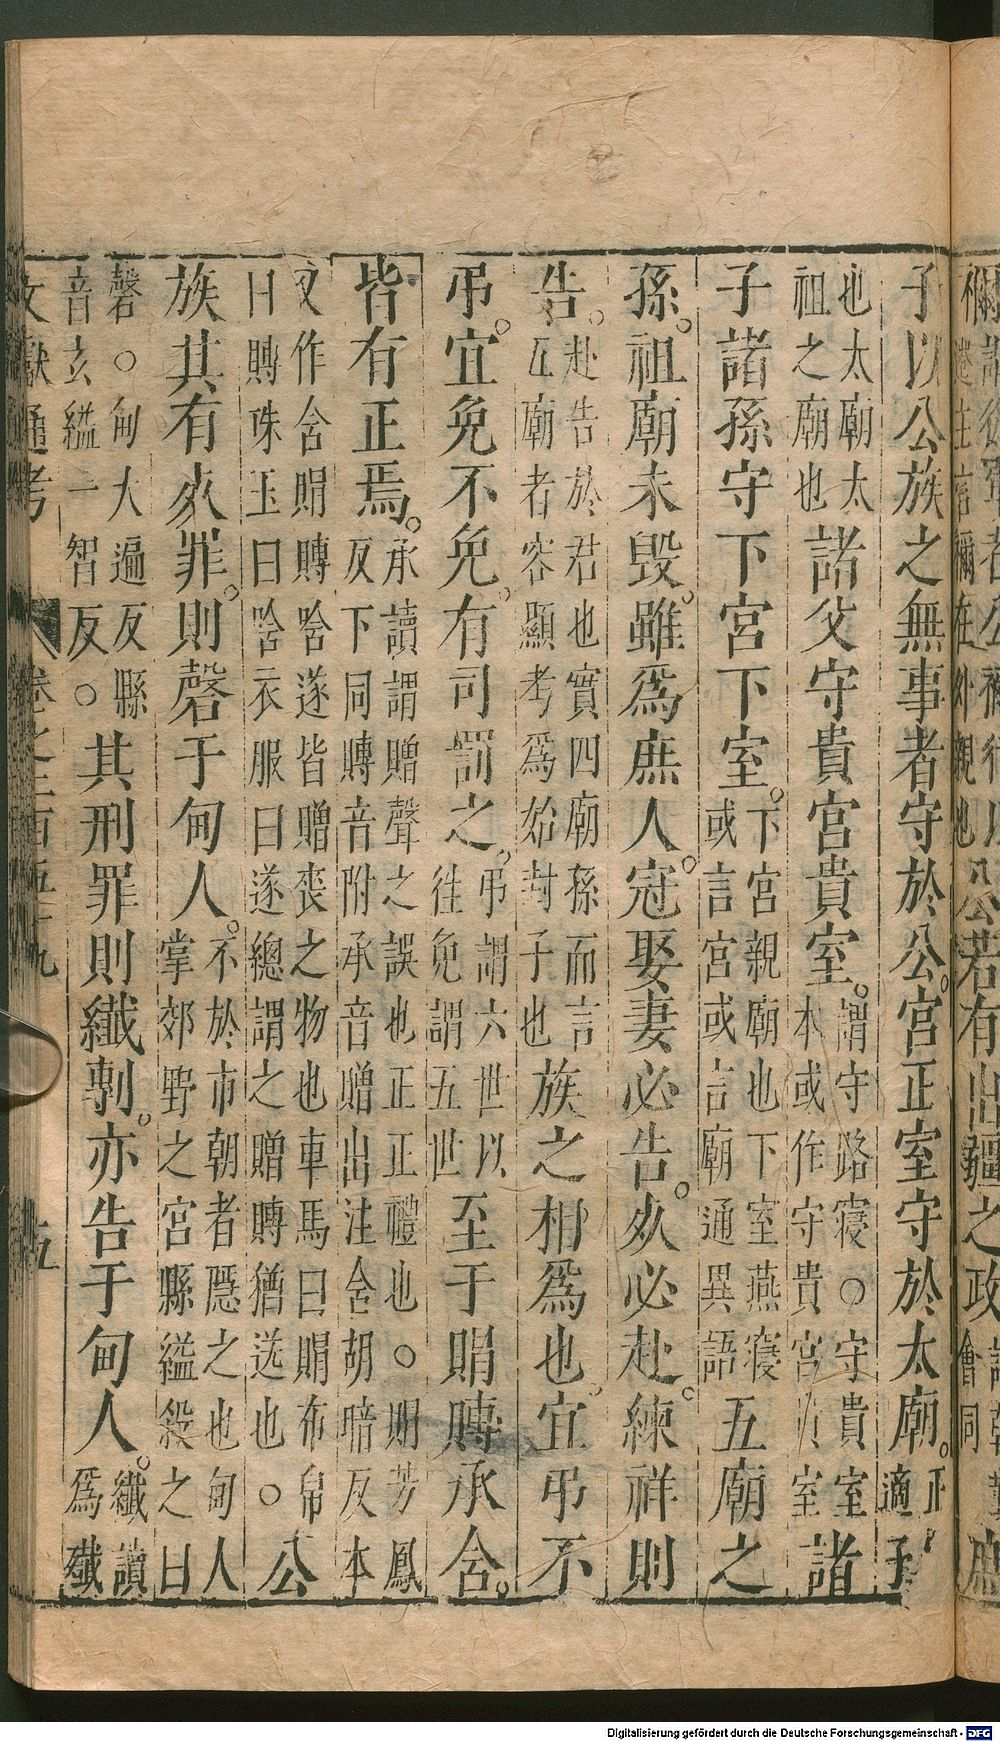 子以公族之無事者守於公宮正室守於太廟。正適子
也太廟太祖之廟也諸父守貴宮貴室。謂守路寢○守貴室本或作守貴宮貴室諸
子諸孫守下宮下室。下宮親廟也下室燕寢或言宮或言廟通異語五廟之
孫。祖廟未毀。雖爲庶人。冠娶妻必告。死必赴。練祥則
告。赴告於君也實四廟孫而言五廟者容顯考爲始封子也族之相爲也。宜弔不
弔。宜免不免。有司罰之。弔謂六世以往免謂五世至于賵賻承含。
皆有正焉。承讀謂贈聲之誤也正正禮也○賵芳鳳反下同賻音附承音贈出注含胡暗反本
又作含賵賻唅遂皆贈喪之物也車馬曰賵布帛曰賻珠玉曰唅衣服曰遂總謂之贈賻猶送也○公
族其有死罪。則磬于甸人。不於市朝者隱之也甸人掌郊野之官縣縊殺之曰
磬○甸大遍反縣音玄縊一智反○其刑罪則纖剸。亦告于甸人。纖讀爲殲
文獻通考 卷之二百五十九 五
公若有出疆之政 庶
Digitalisierung gefördert durch die Deutsche Forschungsgemeinschaft - DFG